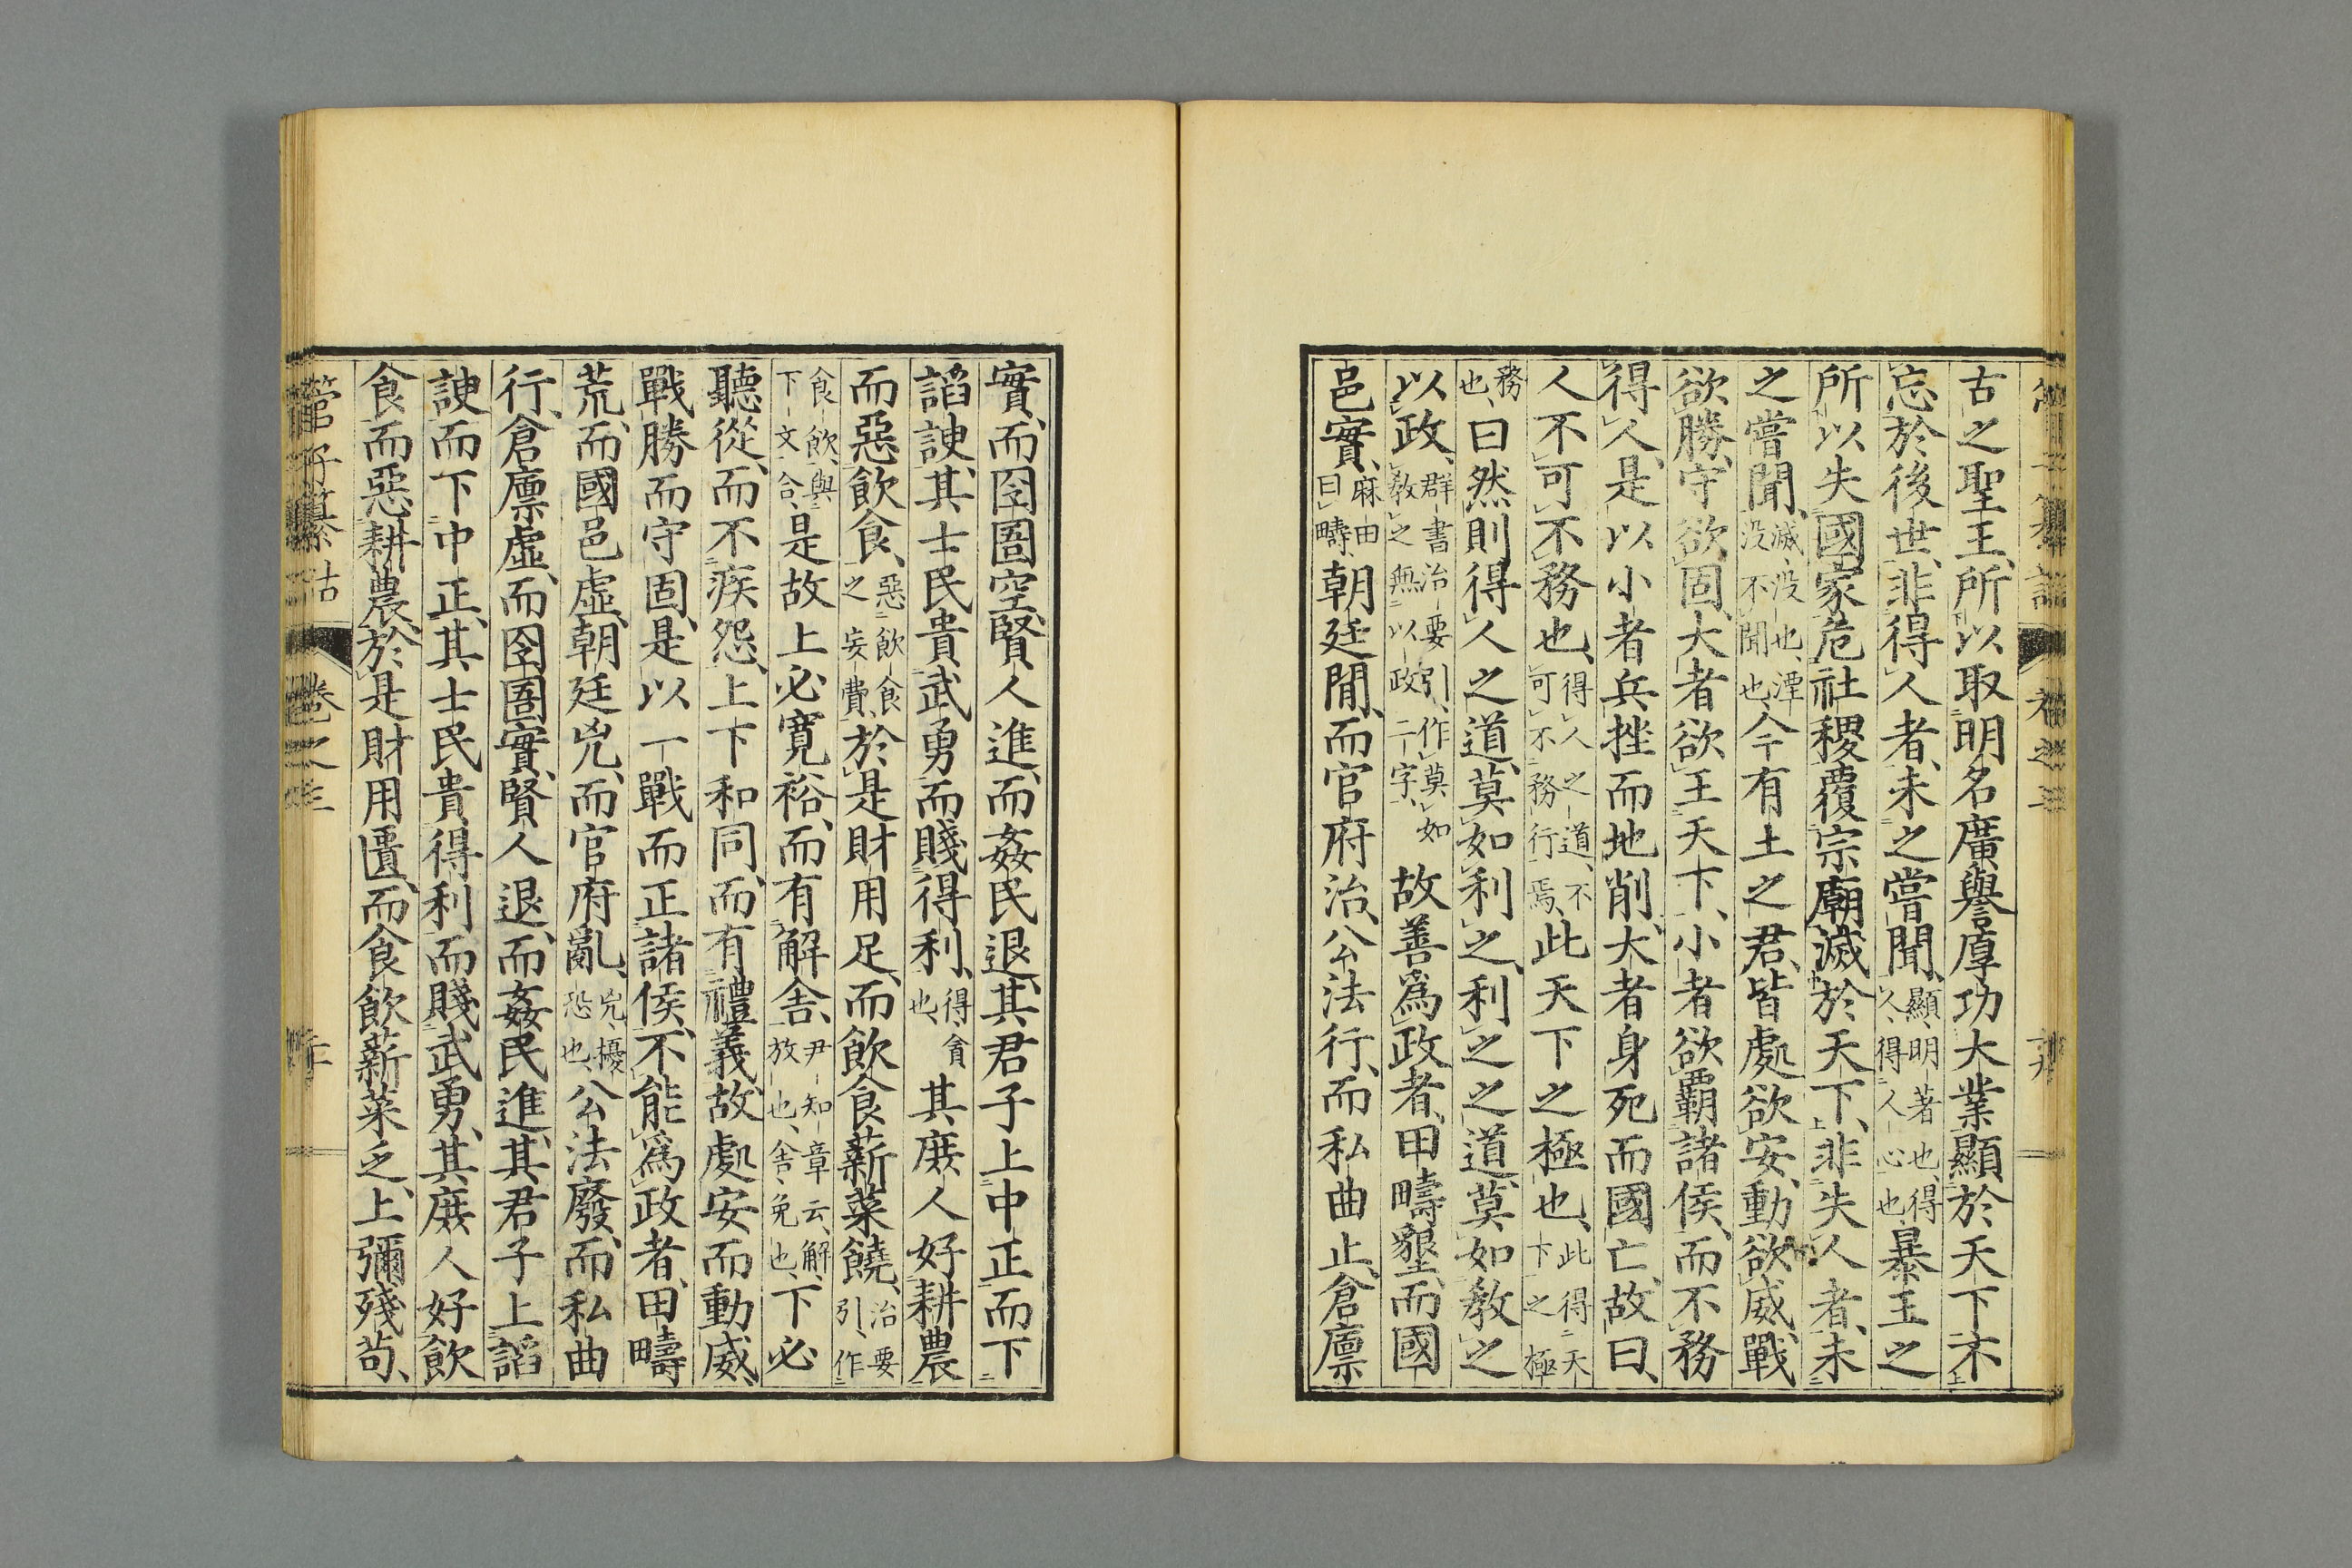 古之聖王、所以取明名廣譽厚功大業顯於天下、不
忘於後世、非得人者、未之嘗聞、顯、明著也、得人、得人心也、暴王之
所以失國家、危社稷、覆宗廟、滅於天下、非失人者、未
之嘗聞、滅、没也、湮没不聞也、今有土之君、皆處欲安、動欲威、戰
欲勝、守欲固、大者欲王天下、小者欲覇諸侯、而不務
得人、是以小者兵挫而地削、大者身死而國亡、故曰、
人不可不務也、得人之道、不可不務行焉、此天下之極也、此得天下之極
務也、曰然則得人之道、莫如利之、利之之道、莫如敎之
以政、群書治要引、作莫如敎之無以政二字、故善爲政者、田疇墾、而國
邑實、麻曰疇、朝廷閒、而官府治、公法行、而私曲止、倉廪
實、而囹圄空、賢人進、而姦民退、其君子上中正而下
諂諛、其士民貴武勇而賤得利、得、貪也、其庶人好耕農
而惡飲食、惡飲食之妄費、於是財用足、而飲食薪菜饒、治要引、作
食飲、與下文合、是故上必寬裕、而有解舍、尹知章云、解、放也、舍、免也、下必
聽從、而不疾怨、上下和同、而有禮義、故處安而動威、
戰勝而守固、是以一戰而正諸侯、不能爲政者、田疇
荒、而國邑虛、朝廷兇、而官府亂、兇、擾恐也、公法廢、而私曲
行、倉廪虛、而囹圄實、賢人退、而姦民進、其君子上諂
諛而下中正、其士民貴得利而賤武勇、其庶人好飲
食而惡耕農、於是財用匱、而食飲薪菜乏、上彌殘苟、
管子纂詁 卷之三